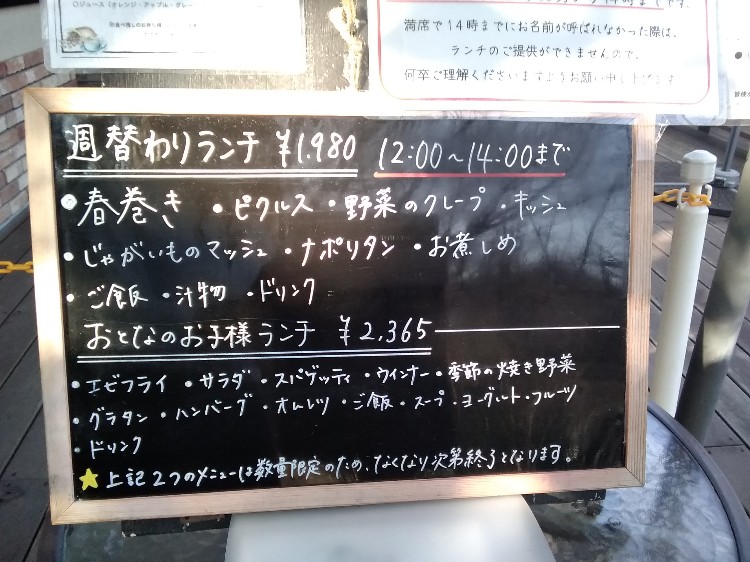 ○ジュース(オレンジ・アップル・グレー
満席で14時までにお名前が呼ばれなかった際は、
ランチのご提供ができませんので、
何卒ご理解くださいますようお願い申し上げます
週替わりランチ ¥1,980 12:00~14:00まで
・春巻き ・ピクルス ・野菜のクレープ ・キッシュ
・じゃがいものマッシュ ・ナポリタン ・お煮しめ
・ご飯 ・汁物 ・ドリンク
おとなのお子様ランチ ¥2,365
・エビフライ ・サラダ ・スパゲッティ ・ウィンナー ・季節の焼き野菜
・グラタン ・ハンバーグ ・オムレツ ・ご飯 ・スープ ・ヨーグルト ・フルーツ
・ドリンク
★上記2つのメニューは数量限定のため、なくなり次第終了となります。